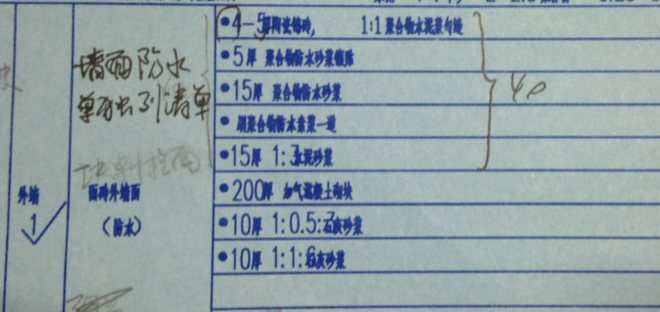 墙面防水
单独列清单
块料墙面
外墙
1
面砖外墙面
(防水)
4-5厚陶瓷锦砖, 1:1聚合物水泥浆勾缝
5厚 聚合物防水砂浆镶贴
15厚 聚合物防水砂浆
刷聚合物防水素浆一道
15厚 1:3水泥砂浆
40
200厚 加气混凝土砌块
10厚 1:0.5:7石灰砂浆
10厚 1:1:6石灰砂浆